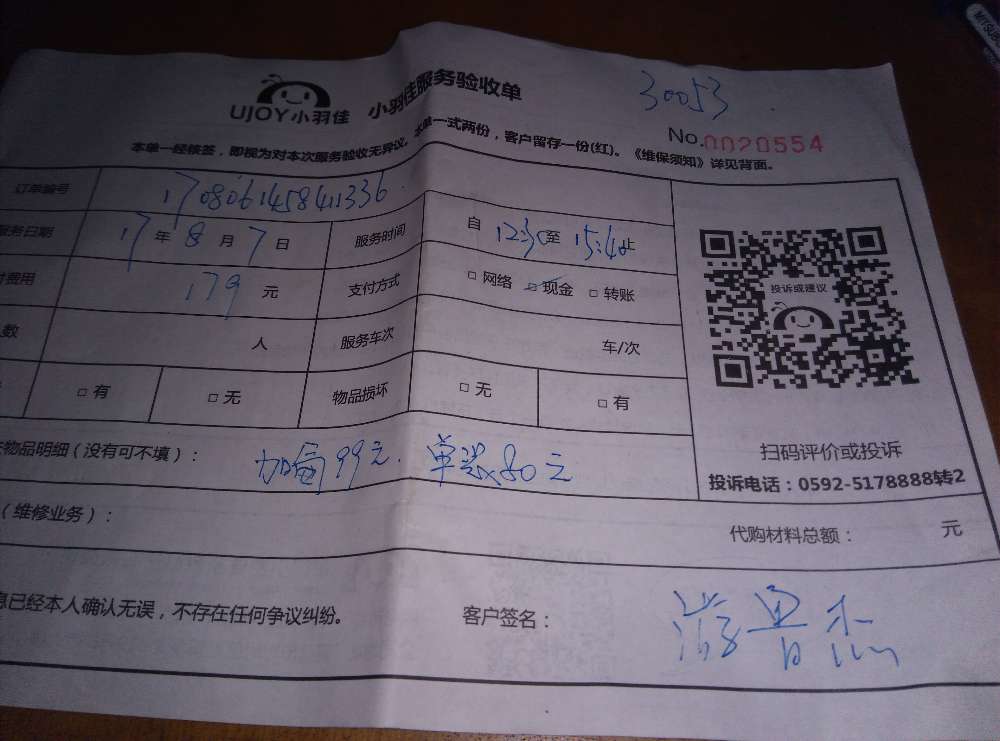 30053
UJOY小羽佳 小羽佳服务验收单
No.0020554
本单一经核签，即视为对本次服务验收无异议。本单一式两份，客户留存一份(红)。《维保须知》详见背面。
订单编号 170806145841336
服务日期 17年8月7日 服务时间 自12:30至15:40止
付费用 179元 支付方式 □网络 □现金 □转账
人数 人 服务车次 车/次
□有 □无 物品损坏 □无 □有
投诉或建议
扫码评价或投诉
投诉电话：0592-5178888转2
物品明细(没有可不填)： 99元. 80元
(维修业务)：
代购材料总额： 元
息已经本人确认无误，不存在任何争议纠纷。 客户签名：
MITSUB